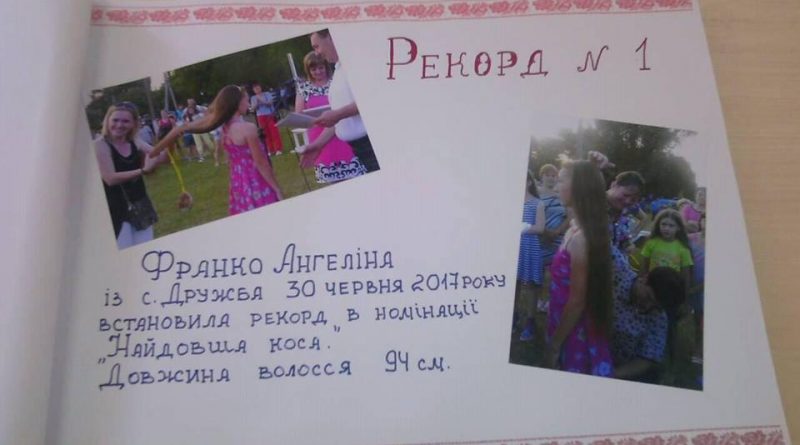 Рекорд № 1
Франко Ангеліна
із с. Дружба 30 червня 2017 року
встановила рекорд „ в номінації
„Найдовша коса.
Довжина волосся 94 см.